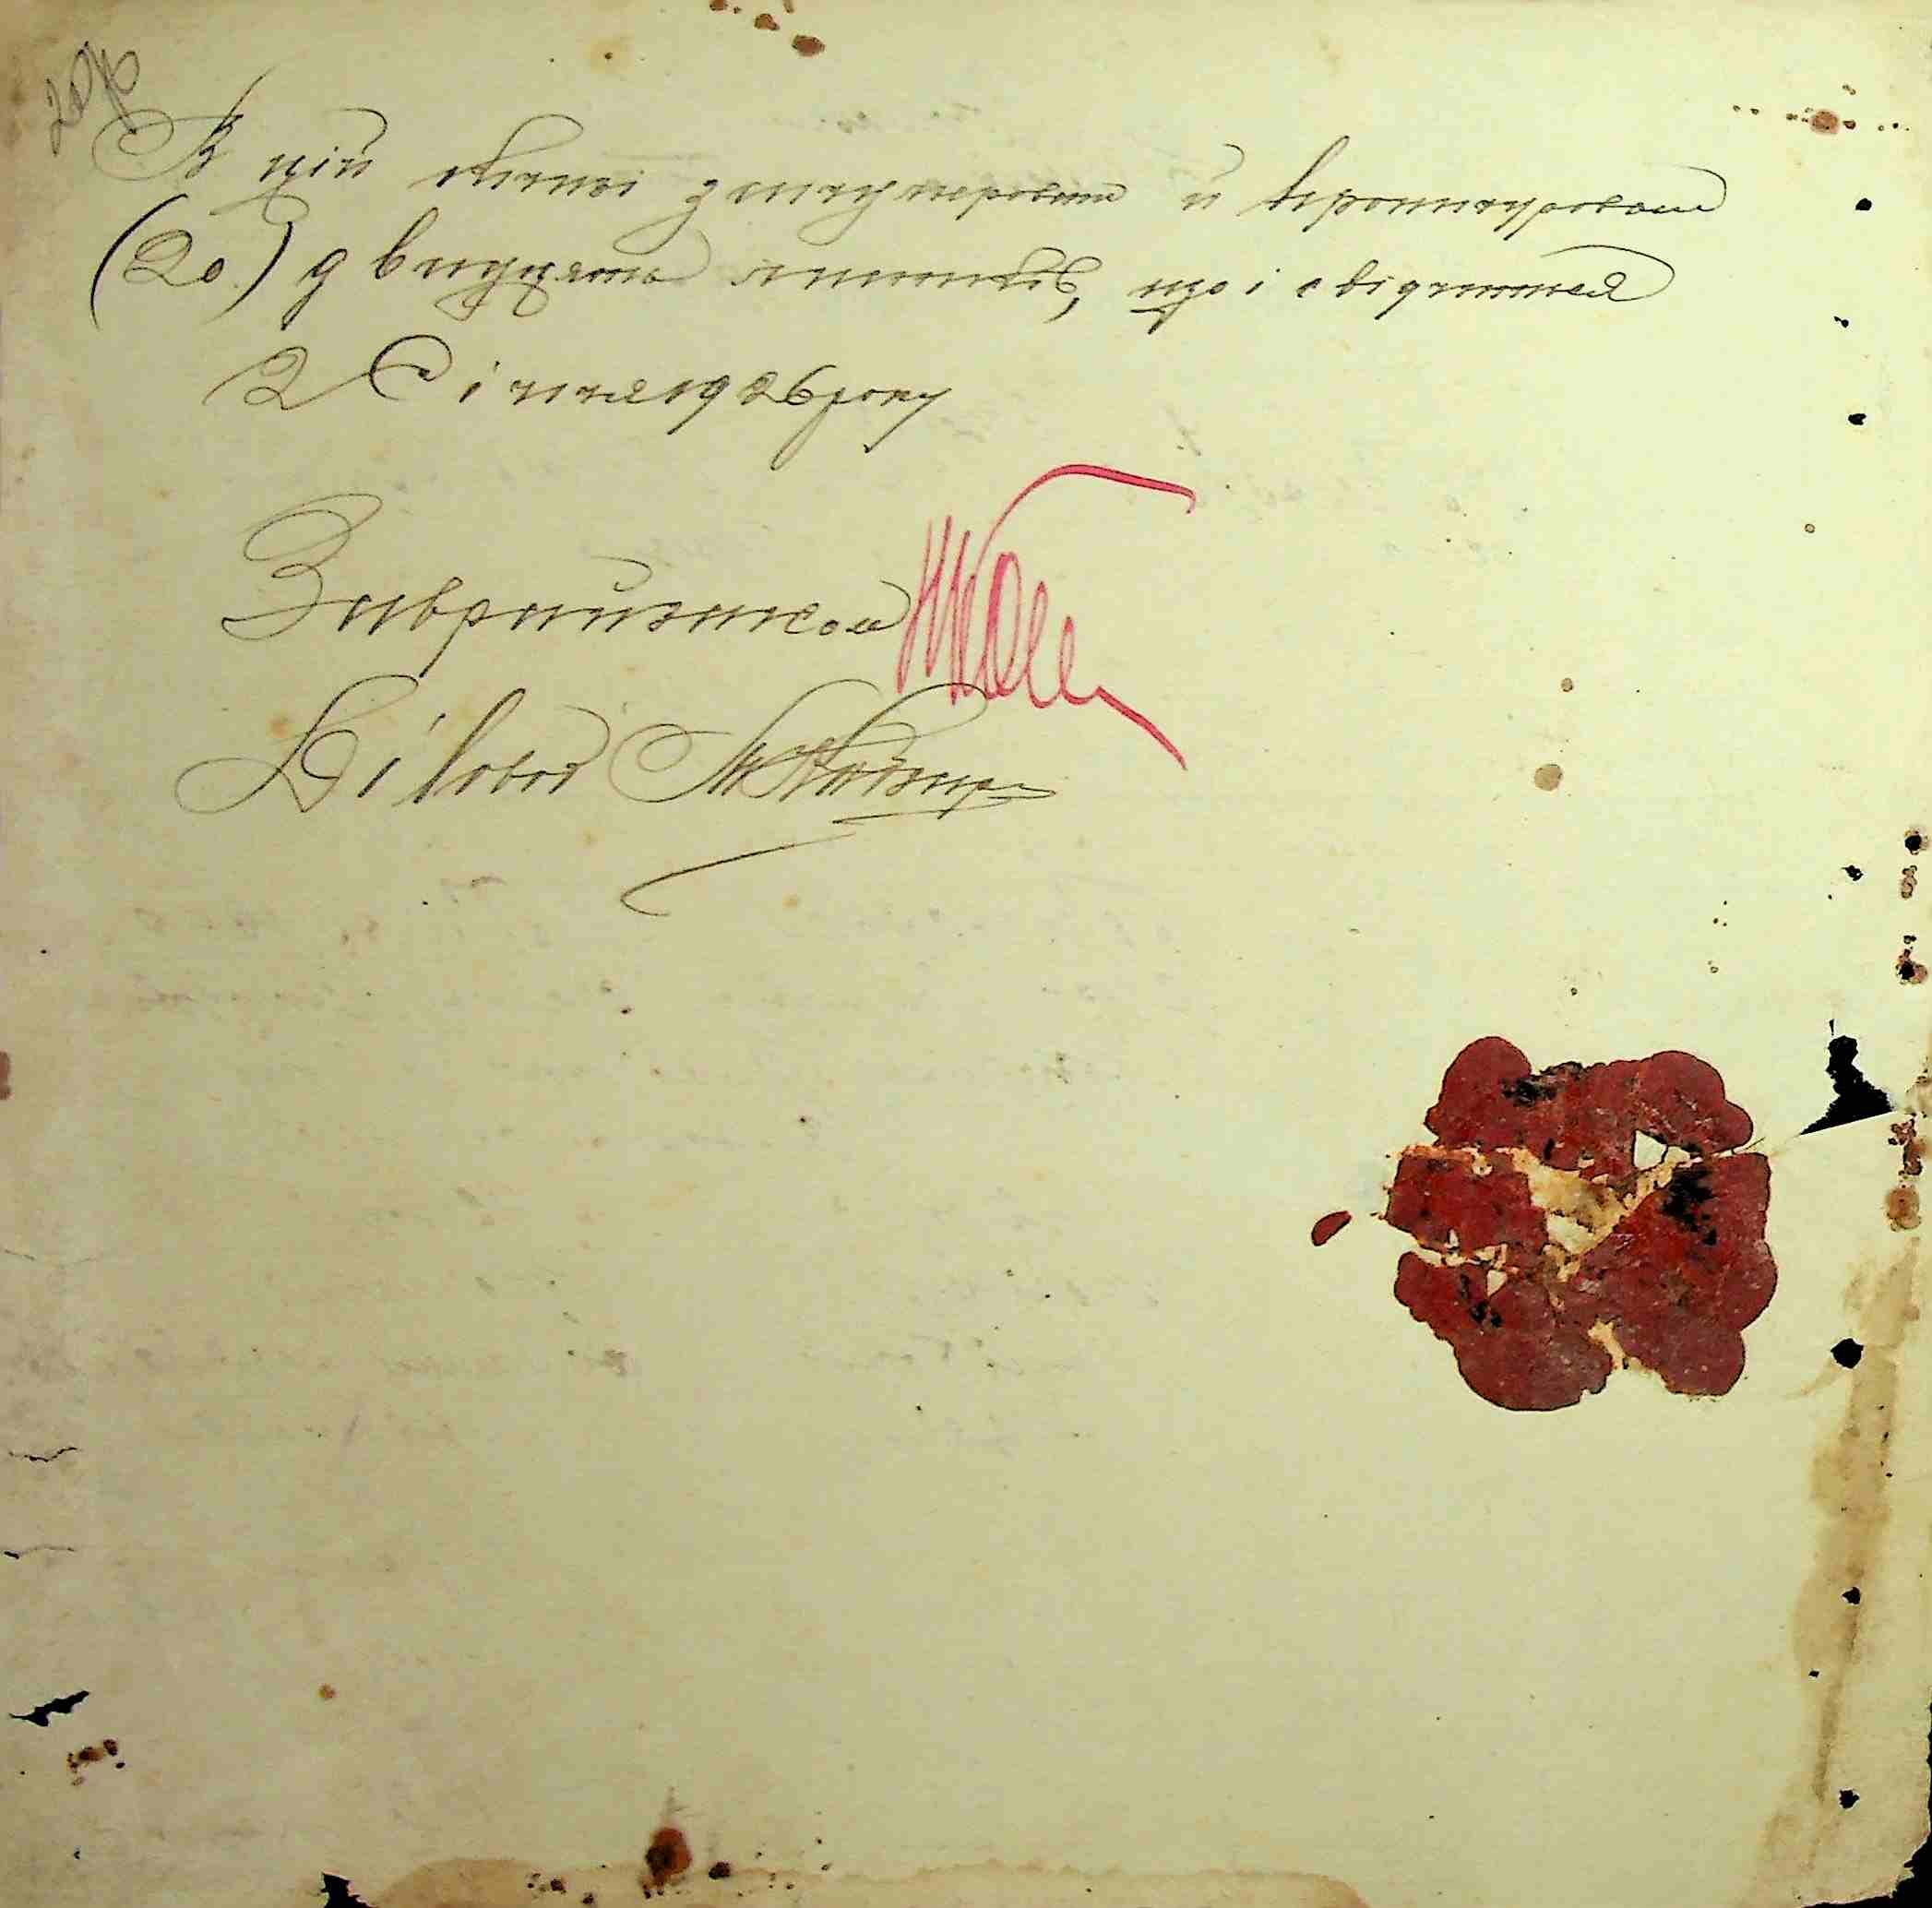 В цій книзі занумеровано й прошнуровано
(20) двадцять листків, що і свідчиться
2 Січня 1926 року
Заврайзагсом
Діловод